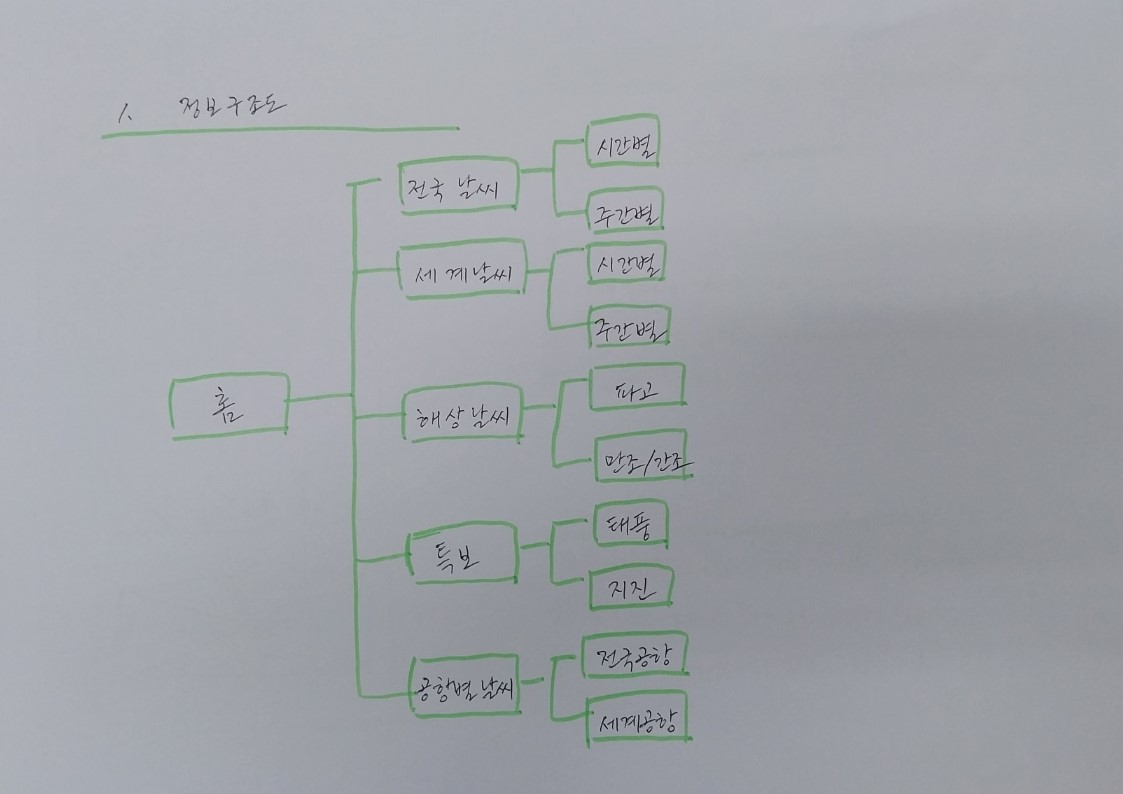 1. 정보구조도
전국 날씨
시간별
주간별
세계날씨
시간별
주간별
홈
해상날씨
파고
만조/간조
특보
태풍
지진
공항별 날씨
전국공항
세계공항